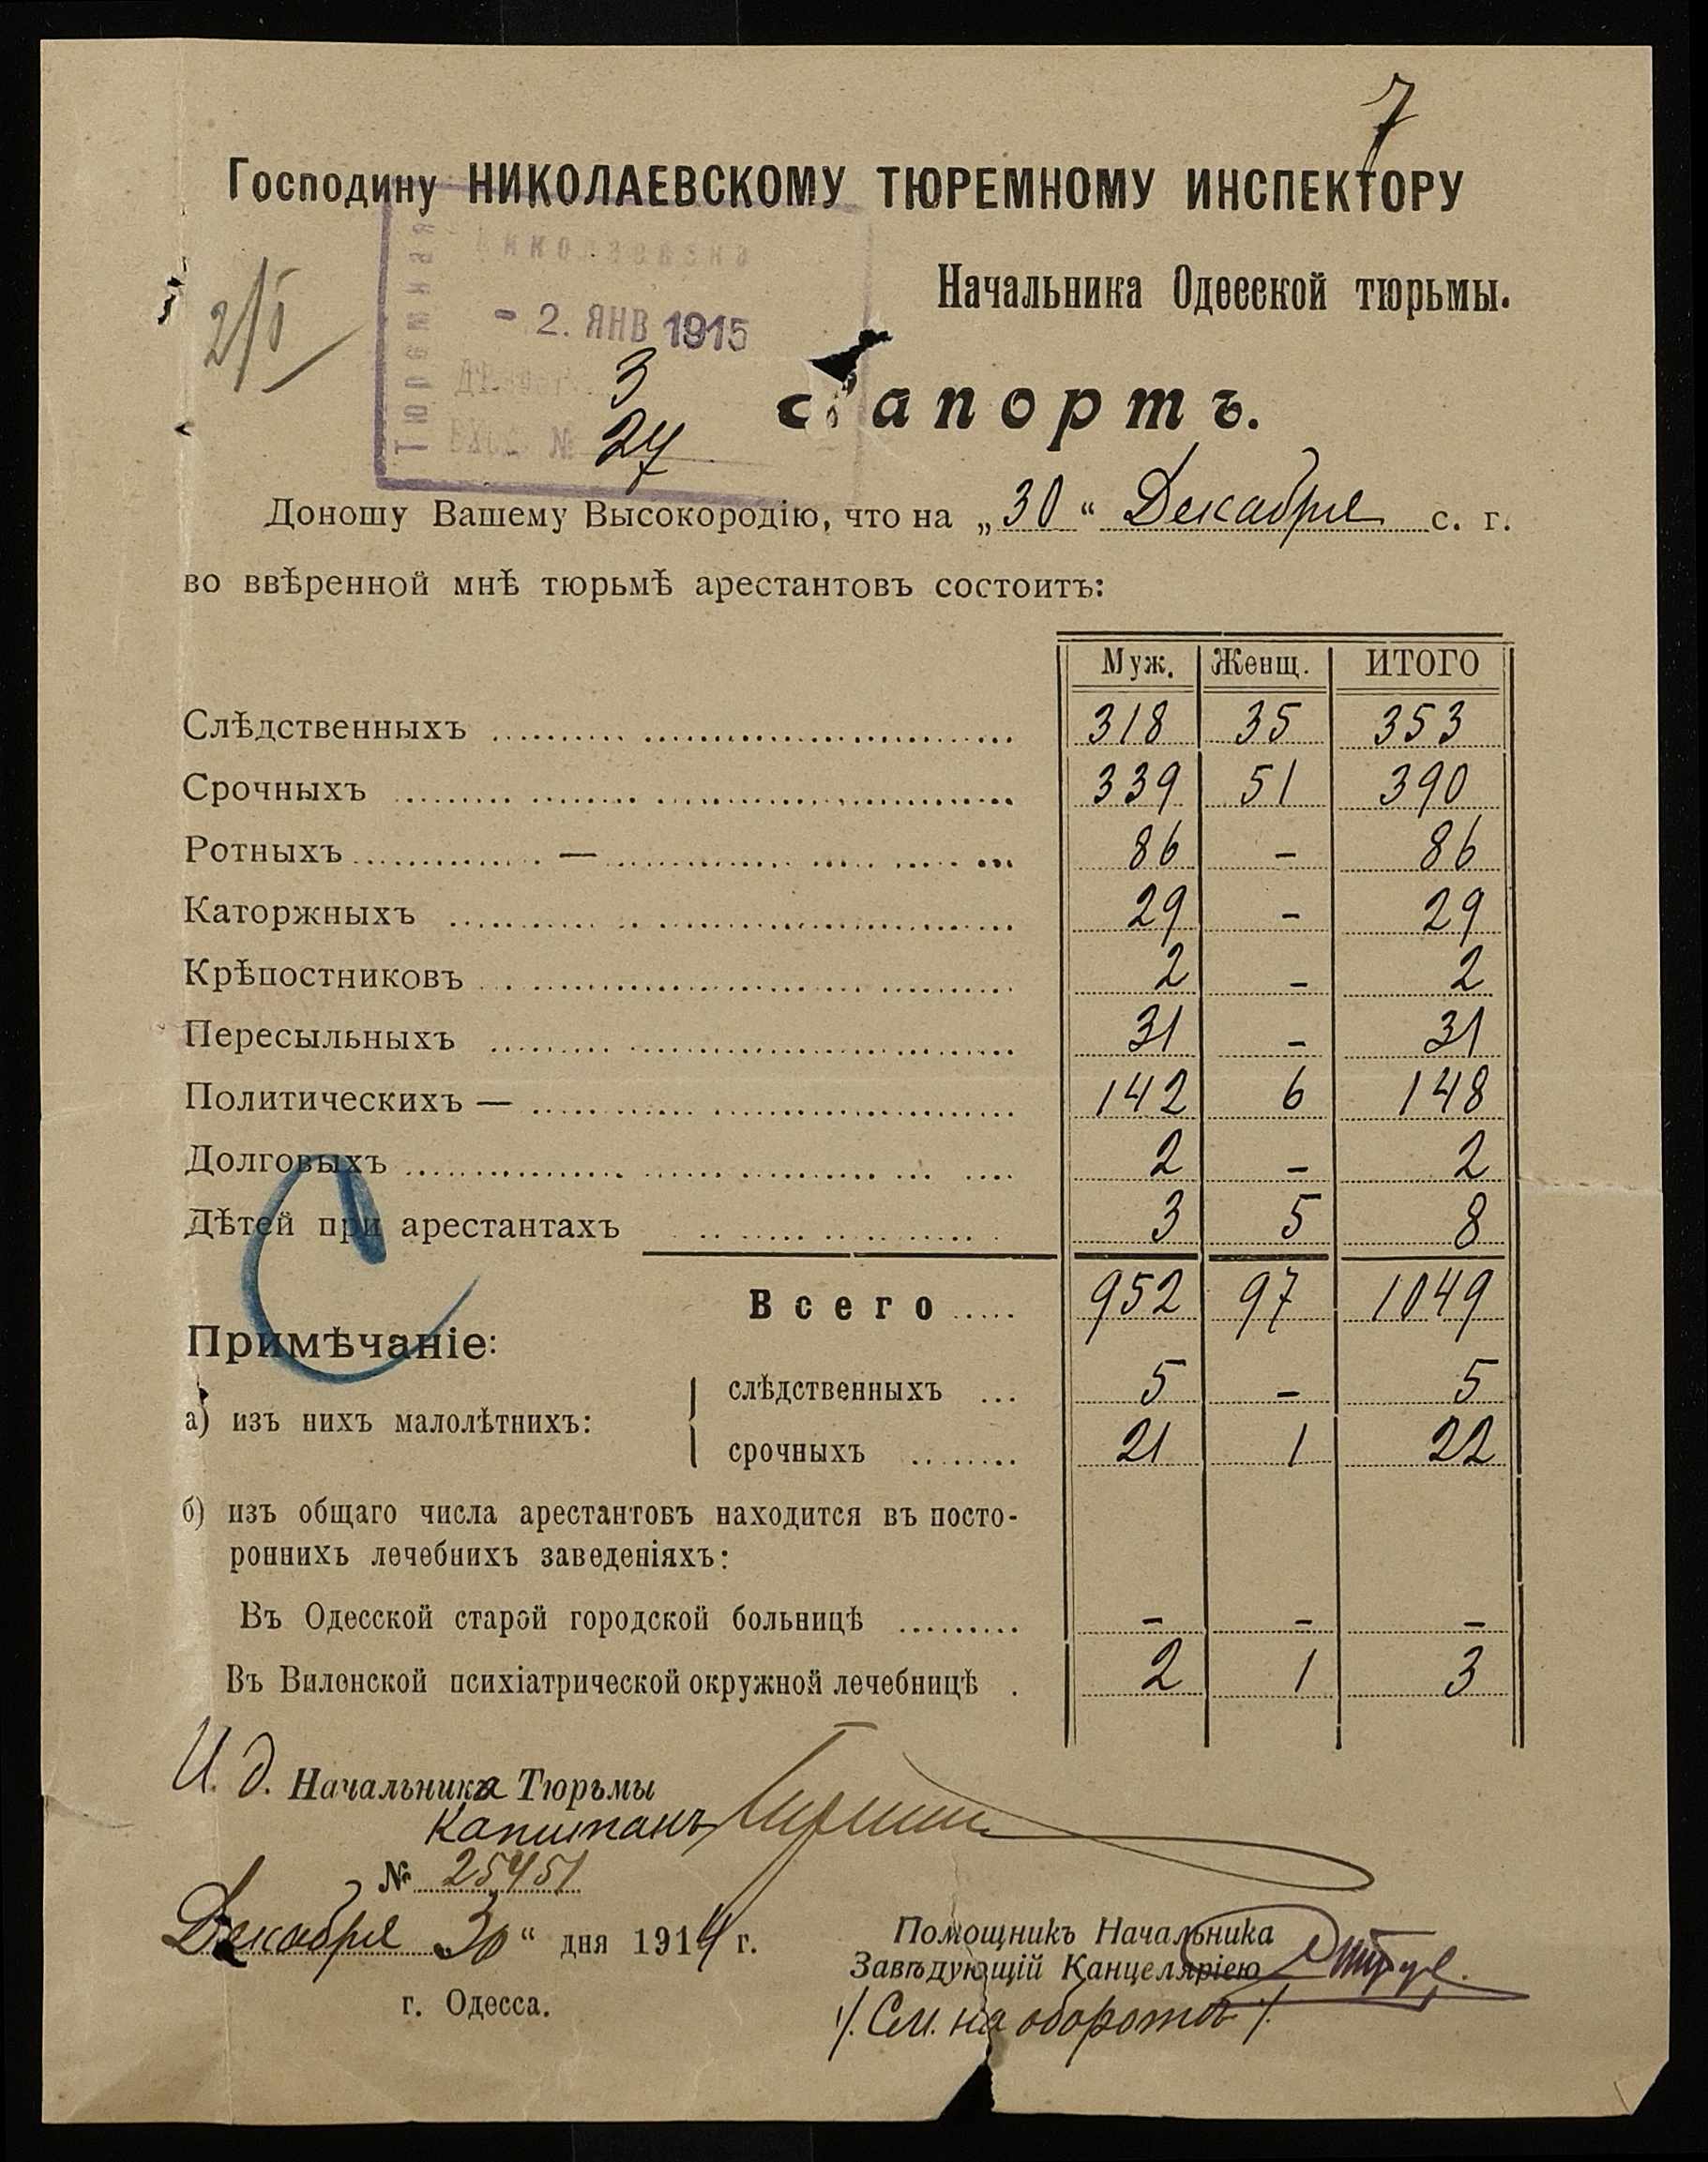 7
Господину НИКОЛАЕВСКОМУ ТЮРЕМНОМУ ИНСПЕКТОРУ
Начальника Одесской тюрьмы.
2/I
Тюремная
Николаевская
- 2. ЯНВ 1915
3
Вход. № 27
Рапортъ.
Доношу Вашему Высокородію, что на „30“ Декабря с. г.
во ввѣренной мнѣ тюрьмѣ арестантовъ состоитъ:
Муж. Женщ. ИТОГО
Слѣдственныхъ 318 35 353
Срочныхъ 339 51 390
Ротныхъ — 86 - 86
Каторжныхъ 29 - 29
Крѣпостниковъ 2 - 2
Пересыльныхъ 31 - 31
Политическихъ — 142 6 148
Долговыхъ 2 - 2
Дѣтей при арестантахъ 3 5 8
Всего 952 97 1049
Примѣчаніе:
слѣдственныхъ 5 - 5
а) изъ нихъ малолѣтнихъ:
срочныхъ 21 1 22
б) изъ общаго числа арестантовъ находится въ посто-
роннихъ лечебнихъ заведеніяхъ:
Въ Одесской старой городской больницѣ - - -
Въ Виленской психіатрической окружной лечебницѣ 2 1 3
И. д. Начальника Тюрьмы
Капитанъ
№ 25451
Декабря „30“ дня 1914 г.
Помощникъ Начальника
Завѣдующій Канцеляріею
г. Одесса.
/. См. на оборотѣ /.